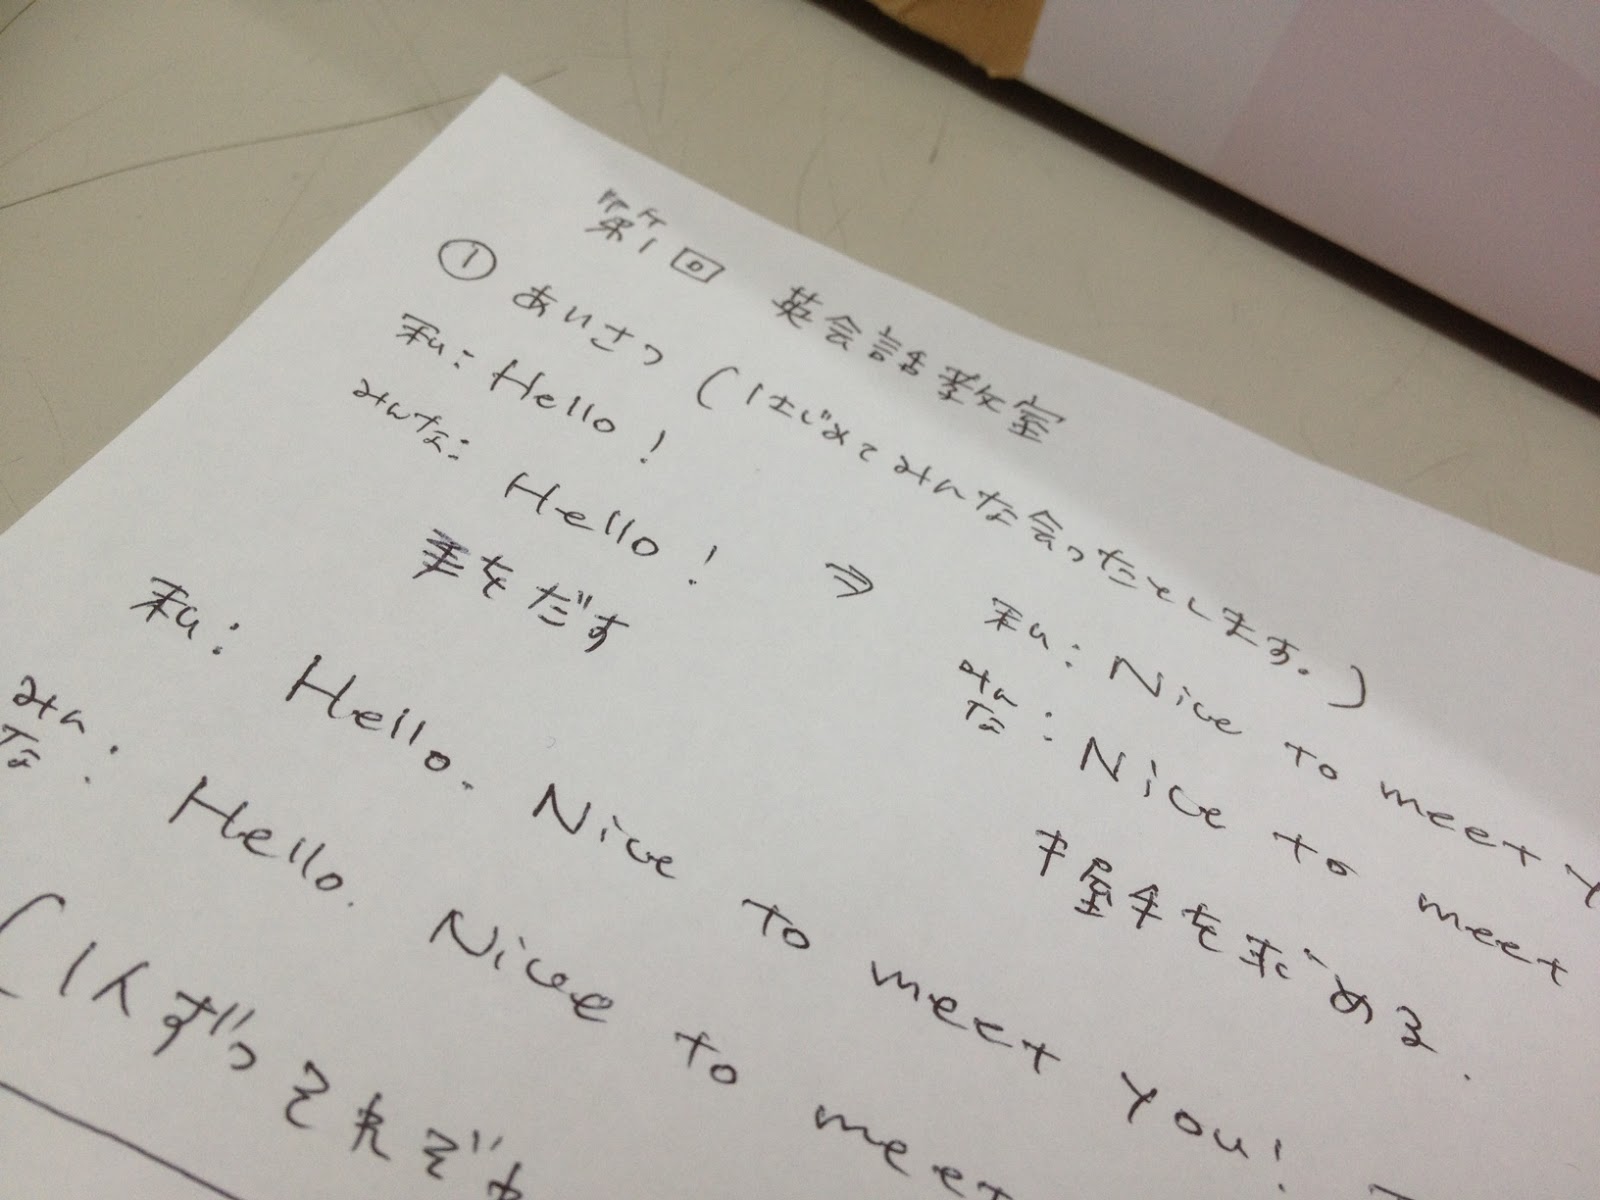 第1回 英会話教室
① あいさつ (はじめてみんな会ったとします。)
私: Hello!
みんな: Hello!
手をだす
⇒ 私: Nice to meet
みんな: Nice to meet
握手を求める.
私: Hello. Nice to meet you!
みんな: Hello. Nice to meet
(1人ずつそれぞれ